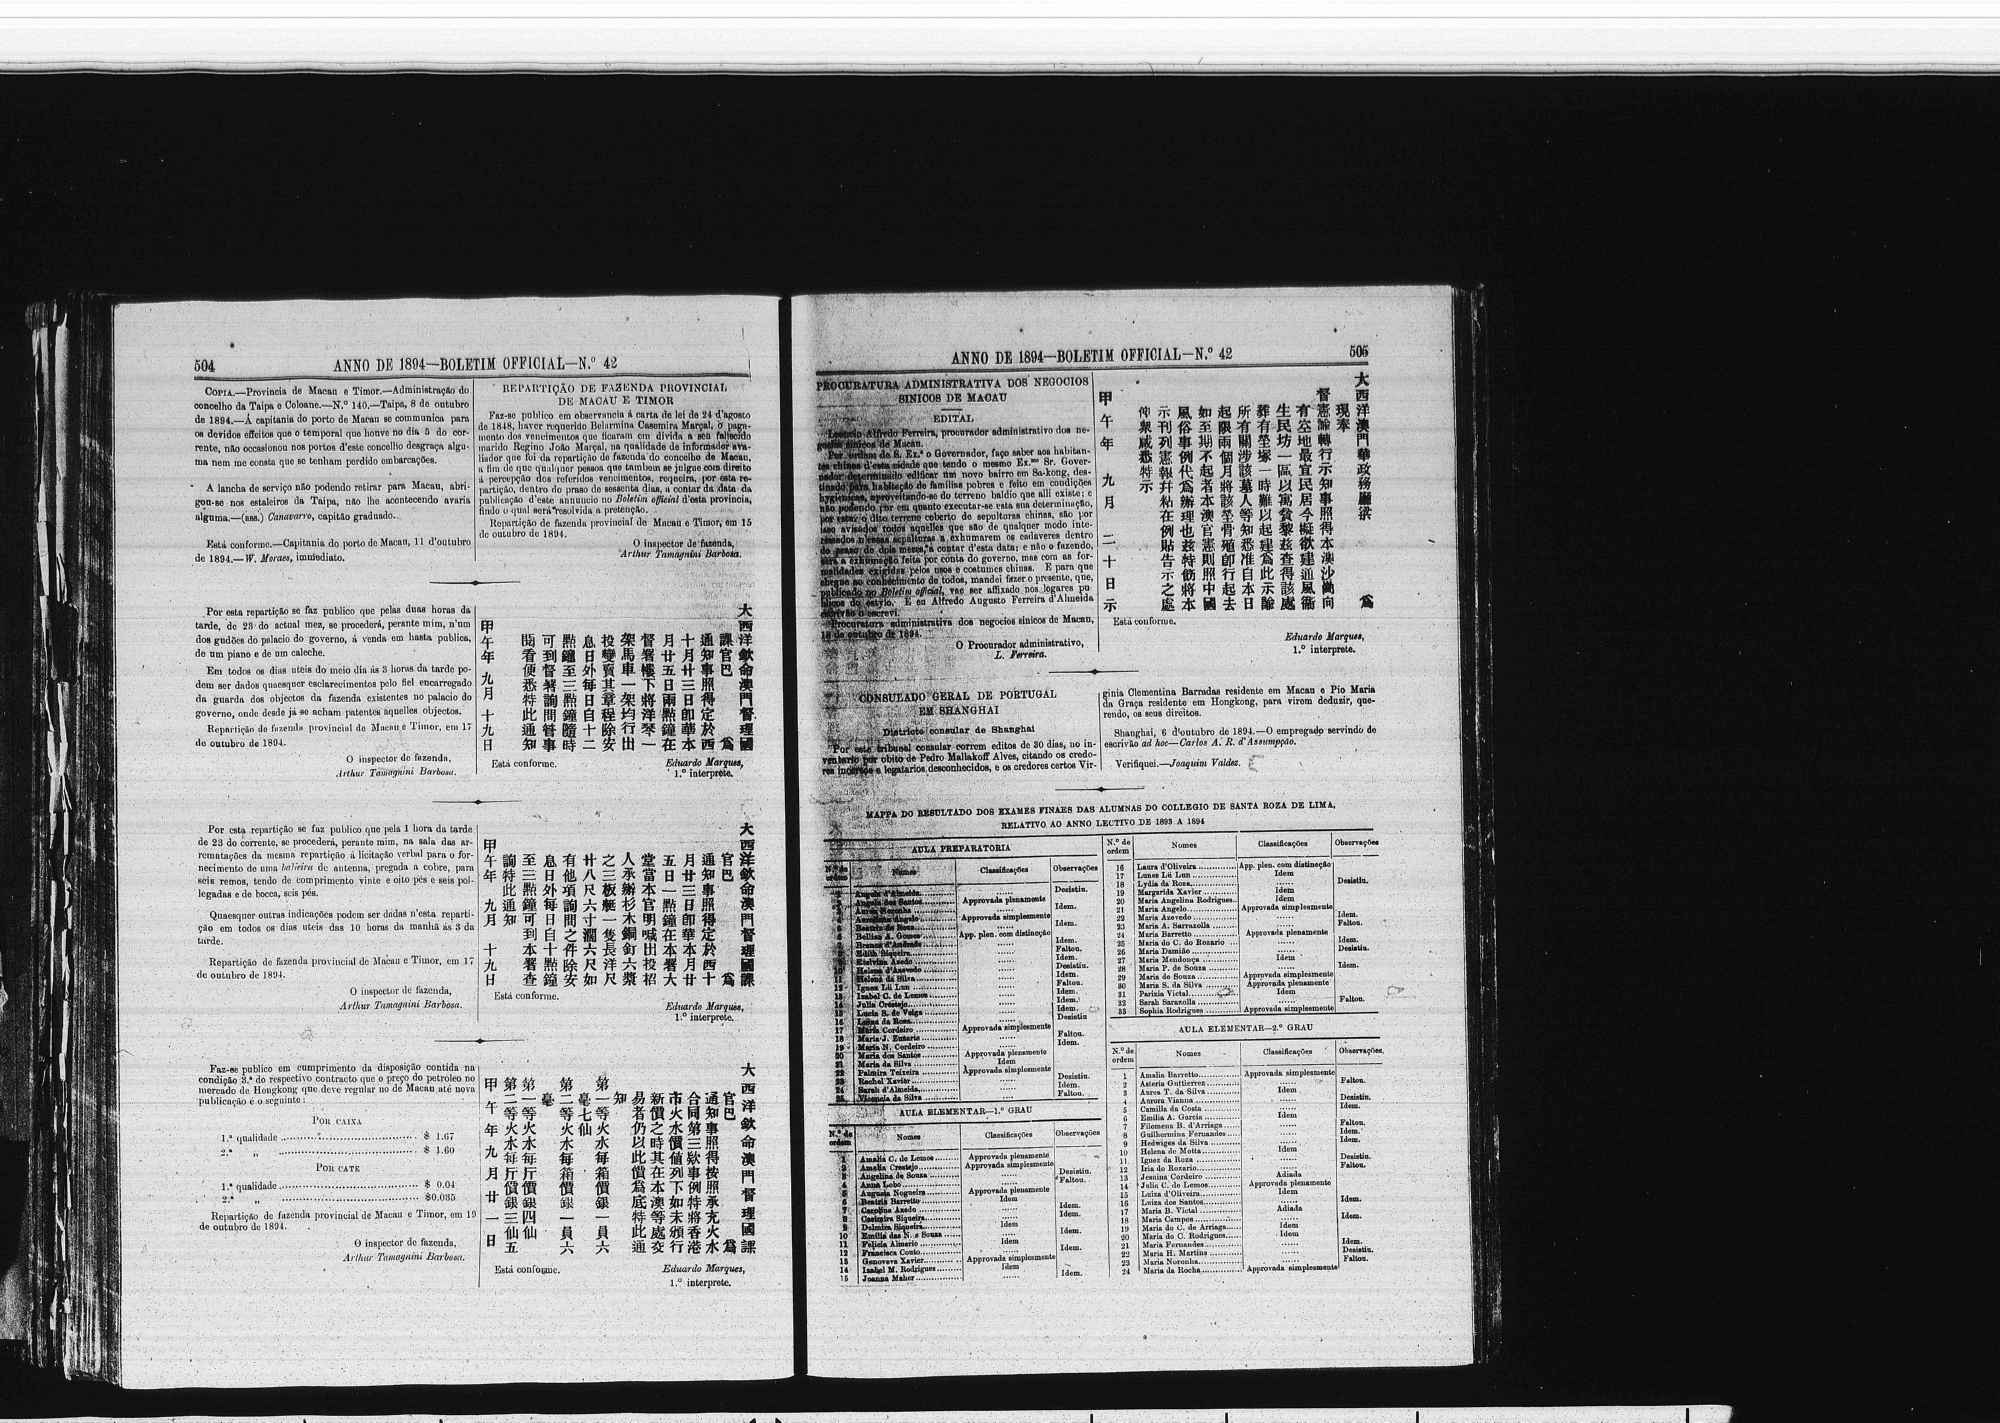 504
ANNO DE 1894—BOLETIM OFFICIAL—N.º 42
COPIA.—Provincia de Macau e Timor.—Administração do
concelho da Taipa e Coloane.—N.º 140.—Taipa, 8 de outubro
de 1894.—Á capitania do porto de Macau se communica para
os devidos effeitos que o temporal que houve no dia 5 do cor-
rente, não occasionou nos portos d'este concelho desgraça algu-
ma nem me consta que se tenham perdido embarcações.
A lancha de serviço não podendo retirar para Macau, abri-
gou-se nos estaleiros da Taipa, não lhe acontecendo avaria
alguma.—(ass.) Canavarro, capitão graduado.
Está conforme.—Capitania do porto de Macau, 11 d'outubro
de 1894.—W. Moraes, immediato.
REPARTIÇÃO DE FAZENDA PROVINCIAL
DE MACAU E TIMOR
Faz-se publico em observancia á carta de lei de 24 d'agosto
de 1848, haver requerido Belarmina Casemira Marçal, o paga-
mento dos vencimentos que ficaram em divida a seu fallecido
marido Regino João Marçal, na qualidade de informador ava-
liador que foi da repartição de fazenda do concelho de Macau,
a fim de que qualquer pessoa que tambem se julgue com direito
á percepção dos referidos vencimentos, requeira, por esta re-
partição, dentro do praso de sessenta dias, a contar da data da
publicação d'este annuncio no Boletim official d'esta provincia,
findo o qual será resolvida a pretenção.
Repartição de fazenda provincial de Macau e Timor, em 15
de outubro de 1894.
O inspector de fazenda,
Arthur Tamagnini Barbosa.
Por esta repartição se faz publico que pelas duas horas da
tarde, de 23 do actual mez, se procederá, perante mim, n'um
dos gudões do palacio do governo, á venda em hasta publica,
de um piano e de um caleche.
Em todos os dias uteis do meio dia ás 3 horas da tarde po-
dem ser dados quaesquer esclarecimentos pelo fiel encarregado
da guarda dos objectos da fazenda existentes no palacio do
governo, onde desde já se acham patentes aquelles objectos.
Repartição de fazenda provincial de Macau e Timor, em 17
de outubro de 1894.
O inspector de fazenda,
Arthur Tamagnini Barbosa.
大西洋欽命澳門督理國
課官巴 為
通知事照得定於西
十月廿三日卽華本
月廿五日兩點鐘在
督署樓下將洋琴一
架馬車一架均行出
投變賣其章程除安
息日外每日自十二
點鐘至三點鐘隨時
可到督署詢問管事
閱看便悉特此通知
甲午年九月十九日
Está conforme.
Eduardo Marques,
1.º interprete.
Por esta repartição se faz publico que pela 1 hora da tarde
de 23 do corrente, se procederá, perante mim, na sala das ar-
rematações da mesma repartição á licitação verbal para o for-
necimento de uma baleeira de antenna, pregada a cobre, para
seis remos, tendo de comprimento vinte e oito pés e seis pol-
legadas e de bocca, seis pés.
Quaesquer outras indicações podem ser dadas n'esta reparti-
ção em todos os dias uteis das 10 horas da manhã ás 3 da
tarde.
Repartição de fazenda provincial de Macau e Timor, em 17
de outubro de 1894.
O inspector de fazenda,
Arthur Tamagnini Barbosa.
大西洋欽命澳門督理國課
官巴 為
通知事照得定於西十
月廿三日卽華本月廿
五日一點鐘在本署大
堂當本官明喊出投招
人承辦杉木銅釘六槳
之三板艇一隻長洋尺
廿八尺六寸濶六尺如
有他項詢問之件除安
息日外每日自十點鐘
至三點鐘可到本署查
詢特此通知
甲午年九月十九日
Está conforme.
Eduardo Marques,
1.º interprete.
Faz-se publico em cumprimento da disposição contida na
condição 3.ª do respectivo contracto que o preço do petroleo no
mercado de Hongkong que deve regular no de Macau até nova
publicação é o seguinte:
POR CAIXA
1.ª qualidade $ 1.67
2.ª „ $ 1.60
POR CATE
1.ª qualidade $ 0.04
2.ª „ $0.035
Repartição de fazenda provincial de Macau e Timor, em 19
de outubro de 1894.
O inspector de fazenda,
Arthur Tamagnini Barbosa.
大西洋欽命澳門督理國課
官巴 為
通知事照得按照承充火水
合同第三欵事例特將香港
市火水價値列下如未頒行
新價之時其在本澳等處交
易者仍以此價為底特此通
知
第一等火水每箱價銀一員六
毫七仙
第二等火水每箱價銀一員六
毫
第一等火水每斤價銀四仙
第二等火水每斤價銀三仙五
甲午年九月廿一日
Está conforme.
Eduardo Marques,
1.º interprete.
ANNO DE 1894—BOLETIM OFFICIAL—N.º 42
505
PROCURATURA ADMINISTRATIVA DOS NEGOCIOS
SINICOS DE MACAU
EDITAL
Leoncio Alfredo Ferreira, procurador administrativo dos ne-
gocios sinicos de Macau.
Por ordem de S. Ex.ª o Governador, faço saber aos habitan-
tes chinas d'esta cidade que tendo o mesmo Ex.mo Sr. Gover-
nador determinado edificar um novo bairro em Sa-kong, des-
tinado para habitação de familias pobres e feito em condições
hygienicas, aproveitando-se do terreno baldio que alli existe; e
não podendo por em quanto executar-se esta sua determinação,
por estar o dito terreno coberto de sepulturas chinas, são por
isso avisados todos aquelles que são de qualquer modo inte-
ressados n'essas sepulturas a exhumarem os cadaveres dentro
do praso de dois mezes, a contar d'esta data; e não o fazendo,
será a exhumação feita por conta do governo, mas com as for-
malidades exigidas pelos usos e costumes chinas. E para que
chegue ao conhecimento de todos, mandei fazer o presente, que,
publicado no Boletim official, vae ser affixado nos logares pu
blicos do estylo. E eu Alfredo Augusto Ferreira d'Almeida
escrivão o escrevi.
Procuratura administrativa dos negocios sinicos de Macau,
18 de outubro de 1894.
O Procurador administrativo,
L. Ferreira.
大西洋澳門華政務廳梁 為
現奉
督憲諭轉行示知事照得本澳沙崗向
有空地最宜民居今擬欲建通風衞
生民坊一區以寓貧黎茲查得該處
葬有塋塚一時難以起建為此示諭
所有關涉該墓人等知悉准自本日
起限兩個月將該塋骨殖卽行起去
如至期不起者本澳官憲則照中國
風俗事例代為辦理也茲特飭將本
示刊列憲報并粘在例貼告示之處
俾衆咸悉特示
甲午年九月二十日示
Está conforme.
Eduardo Marques,
1.º interprete.
CONSULADO GERAL DE PORTUGAL
EM SHANGHAI
Districto consular de Shanghai
Por este tribunal consular correm editos de 30 dias, no in-
ventario por obito de Pedro Mallakoff Alves, citando os credo-
res incertos e legatarios desconhecidos, e os credores certos Vir-
ginia Clementina Barradas residente em Macau e Pio Maria
da Graça residente em Hongkong, para virem deduzir, que-
rendo, os seus direitos.
Shanghai, 6 d'outubro de 1894.—O empregado servindo de
escrivão ad hoc—Carlos A. R. d'Assumpção.
Verifiquei.—Joaquim Valdez.
MAPPA DO RESULTADO DOS EXAMES FINAES DAS ALUMNAS DO COLLEGIO DE SANTA ROZA DE LIMA,
RELATIVO AO ANNO LECTIVO DE 1893 A 1894
AULA PREPARATORIA
N.º de ordem Nomes Classificações Observações
1 Angela d'Almeida ...... Desistiu.
2 Angela dos Santos Approvada plenamente
3 Aurea Noronha ...... Idem.
4 Aureliana Angelo Approvada simplesmente
5 Beatriz da Roza ...... Idem.
6 Bellisa A. Gomes App. plen. com distincção
7 Branca d'Andrade ...... Idem.
8 Edith Siqueira ...... Faltou.
9 Etelvina Azedo ...... Idem.
10 Helena d'Azevedo ...... Desistiu.
11 Helena da Silva ...... Idem.
12 Ignez Lü Lun ...... Faltou.
13 Izabel C. de Lemos ...... Idem.
14 Julia Crestejo ...... Idem.
15 Lucia S. de Veiga ...... Idem.
16 Luiza da Rosa ...... Desistiu
17 Maria Cordeiro Approvada simplesmente
18 Maria J. Euzarte ...... Faltou.
19 Maria N. Cordeiro ...... Idem.
20 Maria dos Santos Approvada plenamente
21 Maria da Silva Idem
22 Palmira Teixeira Approvada simplesmente
23 Rachel Xavier ...... Desistiu.
24 Sarah d'Almeida ...... Idem.
25 Vicencia da Silva ...... Faltou.
AULA ELEMENTAR—1.º GRAU
N.º de ordem Nomes Classificações Observações
1 Amalia C. de Lemos Approvada plenamente
2 Amalia Crestejo Approvada simplesmente
3 Angelina de Souza ...... Desistiu.
4 Anna Lobo ...... Faltou.
5 Augusta Nogueira Approvada plenamente
6 Beatriz Barretto Idem
7 Carolina Azedo ...... Idem.
8 Casimira Siqueira ...... Idem.
9 Delmira Siqueira Idem
10 Emilia das N. e Souza ...... Idem.
11 Felicia Almario Idem
12 Francisca Couto ...... Idem.
13 Genoveva Xavier Approvada simplesmente
14 Izabel M. Rodrigues Idem
15 Joanna Maher ...... Idem.
N.º de ordem Nomes Classificações Observações
16 Laura d'Oliveira App. plen. com distincção
17 Lunes Lü Lun Idem
18 Lydia da Roza ...... Desistiu.
19 Margarida Xavier Idem
20 Maria Angelina Rodrigues Idem
21 Maria Angelo Approvada simplesmente
22 Maria Azevedo ...... Idem.
23 Maria A. Sarrazolla ...... Faltou.
24 Maria Barretto Approvada plenamente
25 Maria do C. do Rozario ...... Idem.
26 Maria Damião ...... Desistiu.
27 Maria Mendonça Idem
28 Maria P. de Souza ...... Idem.
29 Maria de Souza Approvada simplesmente
30 Maria S. da Silva Approvada plenamente
31 Parizia Victal Idem
32 Sarah Sarazolla ...... Faltou.
33 Sophia Rodrigues Approvada simplesmente
AULA ELEMENTAR—2.º GRAU
N.º de ordem Nomes Classificações Observações.
1 Amalia Barretto Approvada simplesmente
2 Asteria Guttierrez ...... Faltou.
3 Aurea T. da Silva Idem
4 Aurora Vianna ...... Desistiu.
5 Camilla da Costa ...... Idem.
6 Emilia A. Garcia Idem
7 Filomena B. d'Arriaga ...... Faltou.
8 Guilhermina Fernandes ...... Idem.
9 Hedwiges da Silva ...... Idem.
10 Helena de Motta Idem
11 Ignez da Roza ...... Desistiu.
12 Iria do Rozario ...... Faltou.
13 Jesuina Cordeiro Adiada
14 Julia C. de Lemos Approvada plenamente
15 Luiza d'Oliveira Idem
16 Luiza dos Santos ...... Idem.
17 Maria B. Victal Adiada
18 Maria Campos ...... Idem.
19 Maria do C. de Arriaga Idem
20 Maria do C. Rodrigues Idem
21 Maria Fernandes ...... Idem.
22 Maria H. Martins ...... Desistiu.
23 Maria Noronha ...... Faltou.
24 Maria da Rocha Approvada simplesmente